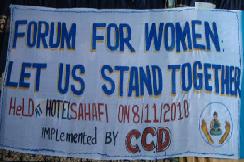 FORUM FOR WOMEN:
LET US STAND TOGETHER
HeLD IN HOTEL SAHAFI ON 8/11/2010
IMPLemented BY CCD